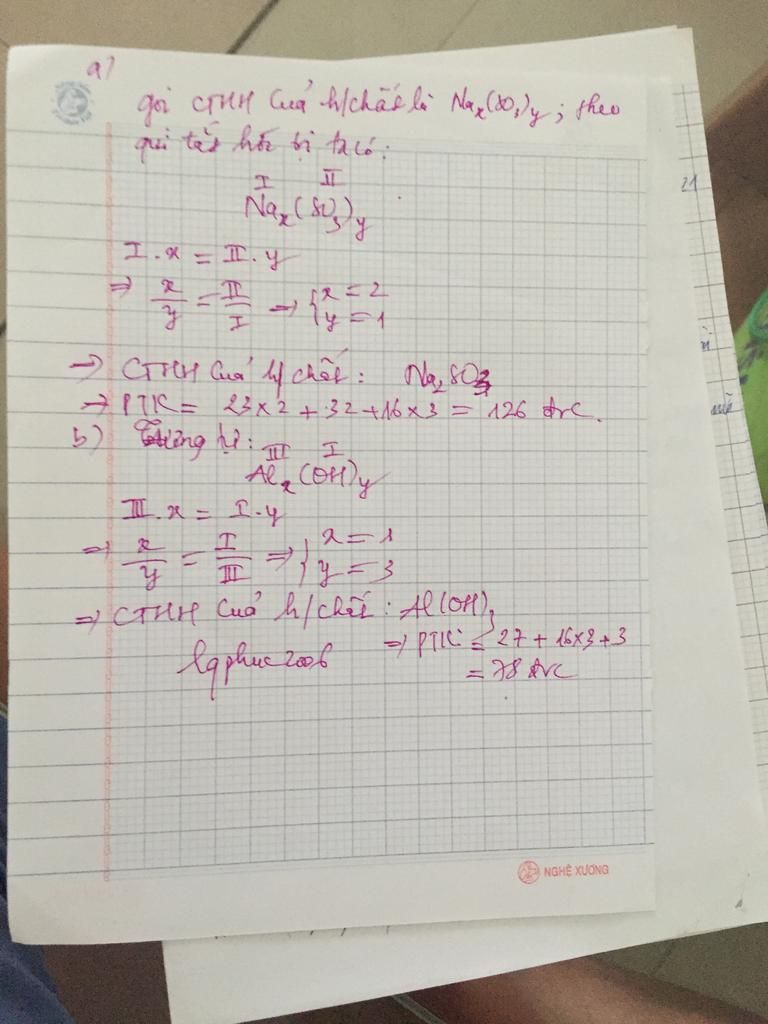 a)
gọi CTHH của h/chất là Naₓ(SO₃)y; theo
qui tắc hóa trị ta có:
I II
Naₓ(SO₃)y
I.x = II.y
=> x/y = II/I => { x = 2
y = 1
=> CTHH của h/chất: Na₂SO₃
=> PTK = 23x2 + 32 + 16x3 = 126 đvC.
b) Tương tự:
III I
Alₓ(OH)y
III.x = I.y
=> x/y = I/III => { x = 1
y = 3
=> CTHH của h/chất: Al(OH)₃
=> PTK = 27 + 16x3 + 3
= 78 đvC
lqphuc2006
21
NGHỆ XƯƠNG